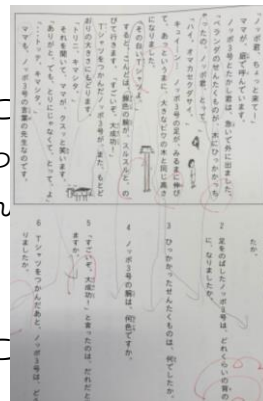 「ノッポ君、ちょっと来て!」
ママが、庭で呼んでいます。
ノッポ3号とたかし君は、急いで外に出ました。
「ベランダのせんたくものが、木にひっかかっち
ゃったの。ノッポ君、とって。」
「ハイ、オマカセクダサイ。」
キュイーン!ノッポ3号の足が、みるまに伸び
て、あっというまに、大きなビワの木と同じ高さ
になりました。
その白いTシャツよ。
するとこんどは、銀色の腕が、スルスルと、の
びて行きます。「すごいぞ、大成功!」
Tシャツをつかんだノッポ3号が、また、もとど
おりの大きさにもどります。
「トリニ、キマシタ。」
それを聞いて、ママが、クスッと笑います。
「ありがと。でも、とりにじゃなくて、とって、よ」
「…トッテ、キマシタ。」
ママも、ノッポ3号の言葉の先生なのです。
たか。
2 足をのばしたノッポ3号は、どれくらいの背の
に、なりましたか。
3 ひっかかったせんたくものは、何でしたか。
4 ノッポ3号の腕は、何色ですか。
5 「すごいぞ、大成功!」と言ったのは、だれだと
ますか。
6 Tシャツをつかんだあと、ノッポ3号は、ど
りましたか。